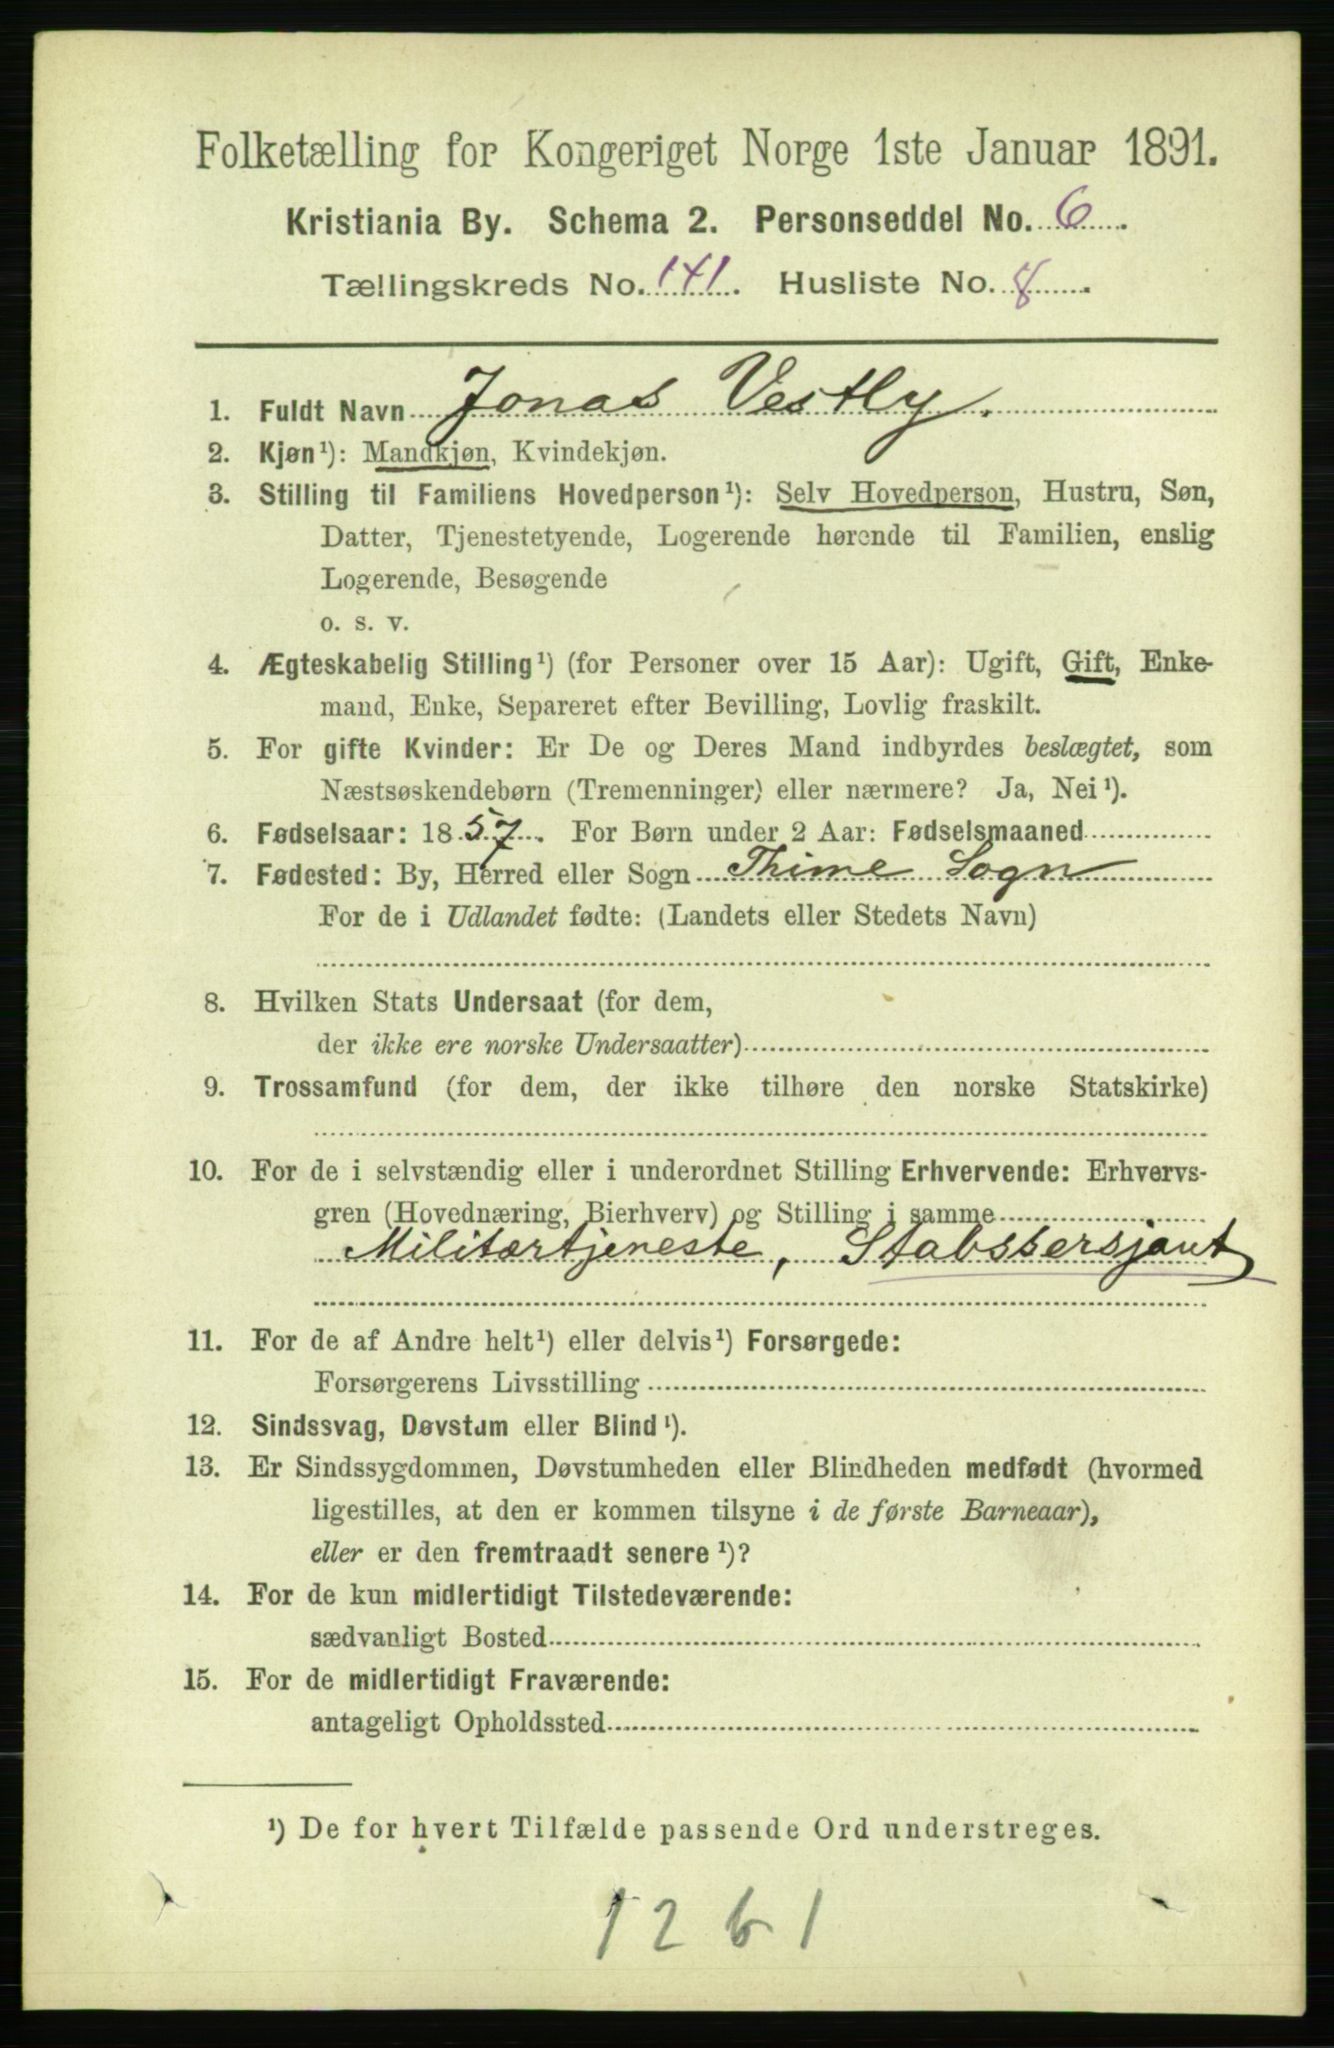 Folketælling for Kongeriget Norge 1ste Januar 1891.
Kristiania By. Schema 2. Personseddel No. 6.
Tællingskreds No. 141. Husliste No. 8.
1. Fuldt Navn Jonas Vestly.
2. Kjøn¹): Mandkjøn, Kvindekjøn.
3. Stilling til Familiens Hovedperson¹): Selv Hovedperson, Hustru, Søn,
Datter, Tjenestetyende, Logerende hørende til Familien, enslig
Logerende, Besøgende
o. s. v.
4. Ægteskabelig Stilling¹) (for Personer over 15 Aar): Ugift, Gift, Enke-
mand, Enke, Separeret efter Bevilling, Lovlig fraskilt.
5. For gifte Kvinder: Er De og Deres Mand indbyrdes beslægtet, som
Næstsøskendebørn (Tremenninger) eller nærmere? Ja, Nei¹).
6. Fødselsaar: 1857. For Børn under 2 Aar: Fødselsmaaned
7. Fødested: By, Herred eller Sogn Thime Sogn
For de i Udlandet fødte: (Landets eller Stedets Navn)
8. Hvilken Stats Undersaat (for dem,
der ikke ere norske Undersaatter)
9. Trossamfund (for dem, der ikke tilhøre den norske Statskirke)
10. For de i selvstændig eller i underordnet Stilling Erhvervende: Erhvervs-
gren (Hovednæring, Bierhverv) og Stilling i samme
Militærtjeneste, Stabssersjant
11. For de af Andre helt¹) eller delvis¹) Forsørgede:
Forsørgerens Livsstilling
12. Sindssvag, Døvstum eller Blind¹).
13. Er Sindssygdommen, Døvstumheden eller Blindheden medfødt (hvormed
ligestilles, at den er kommen tilsyne i de første Barneaar),
eller er den fremtraadt senere¹)?
14. For de kun midlertidigt Tilstedeværende:
sædvanligt Bosted
15. For de midlertidigt Fraværende:
antageligt Opholdssted
¹) De for hvert Tilfælde passende Ord understreges.
1261